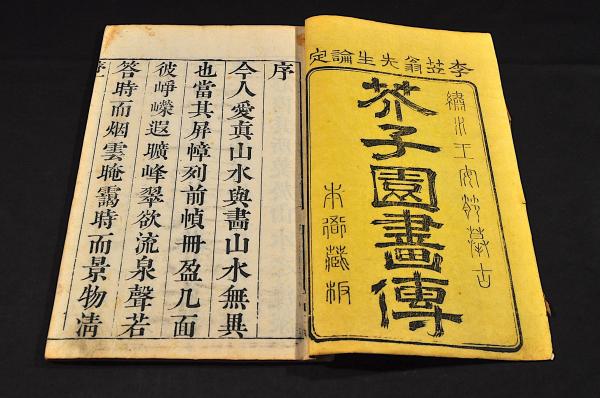 李笠翁先生論定
繡水王安節摹古
芥子園畫傳
本衙藏板
序
今人愛真山水與畵山水無異
也當其屏幛列前幀冊盈几面
彼崢嶸遐曠峰翠欲流泉聲若
答時而烟雲晻靄時而景物清